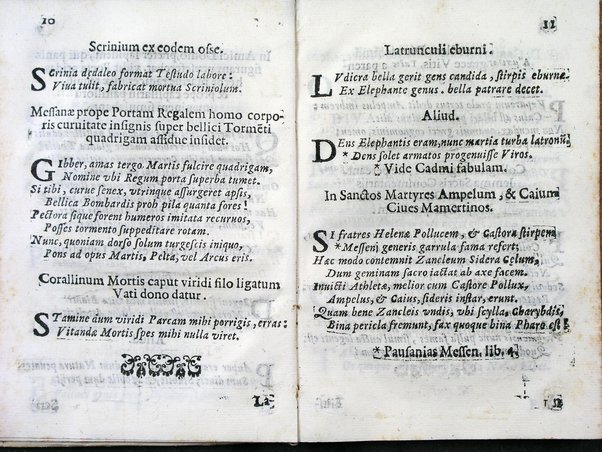 10
Scrinium ex eodem osse.
Scrinia dędaleo format Testudo labore:
Viua tulit, fabricat mortua Scriniolum.
Messanæ prope Portam Regalem homo corpo
ris curuitate insignis super bellici Tormēti
quadrigam assidue insidet.
Gibber, amas tergo Martis fulcire quadrigam,
Nomine vbi Regum porta superba tumet.
Si tibi, curue senex, vtrinque assurgeret apsis,
Bellica Bombardis prob pila quanta fores!
Pectora sique forent humeros imitata recuruos,
Posses tormento suppeditare rotam.
Nunc, quoniam dorso solum turgescis iniquo,
Pons ad opus Martis, Pelta, vel Arcus eris.
Corallinum Mortis caput viridi filo ligatum
Vati dono datur.
Stamine dum viridi Parcam mihi porrigis, erras:
Vitandæ Mortis spes mihi nulla viret.
11
Latrunculi eburni.
Lvdicra bella gerit gens candida, stirpis eburnę
Ex Elephante genus. bella patrare decet.
Aliud.
Dens Elephantis eram, nunc martia turba latronū
* Dens solet armatos progenuisse Viros.
* Vide Cadmi fabulam.
In Sanctos Martyres Ampelum, & Caium
Ciues Mamertinos.
Si fratres Helenæ Pollucem, & Castora stirpem
* Messenj generis garrula fama refert;
Hac modo contemnit Zancleum Sidera Cęlum,
Dum geminam sacro iactat ab axe facem.
Inuicti Athletæ, melior cum Castore Pollux,
Ampelus, & Caius, sideris instar, erunt.
Quam bene Zancleis vndis, vbi scylla, Charybdis,
Bina pericla fremunt, fax quoque bina Pharo est!
* Pausanias Messen. lib. 4.